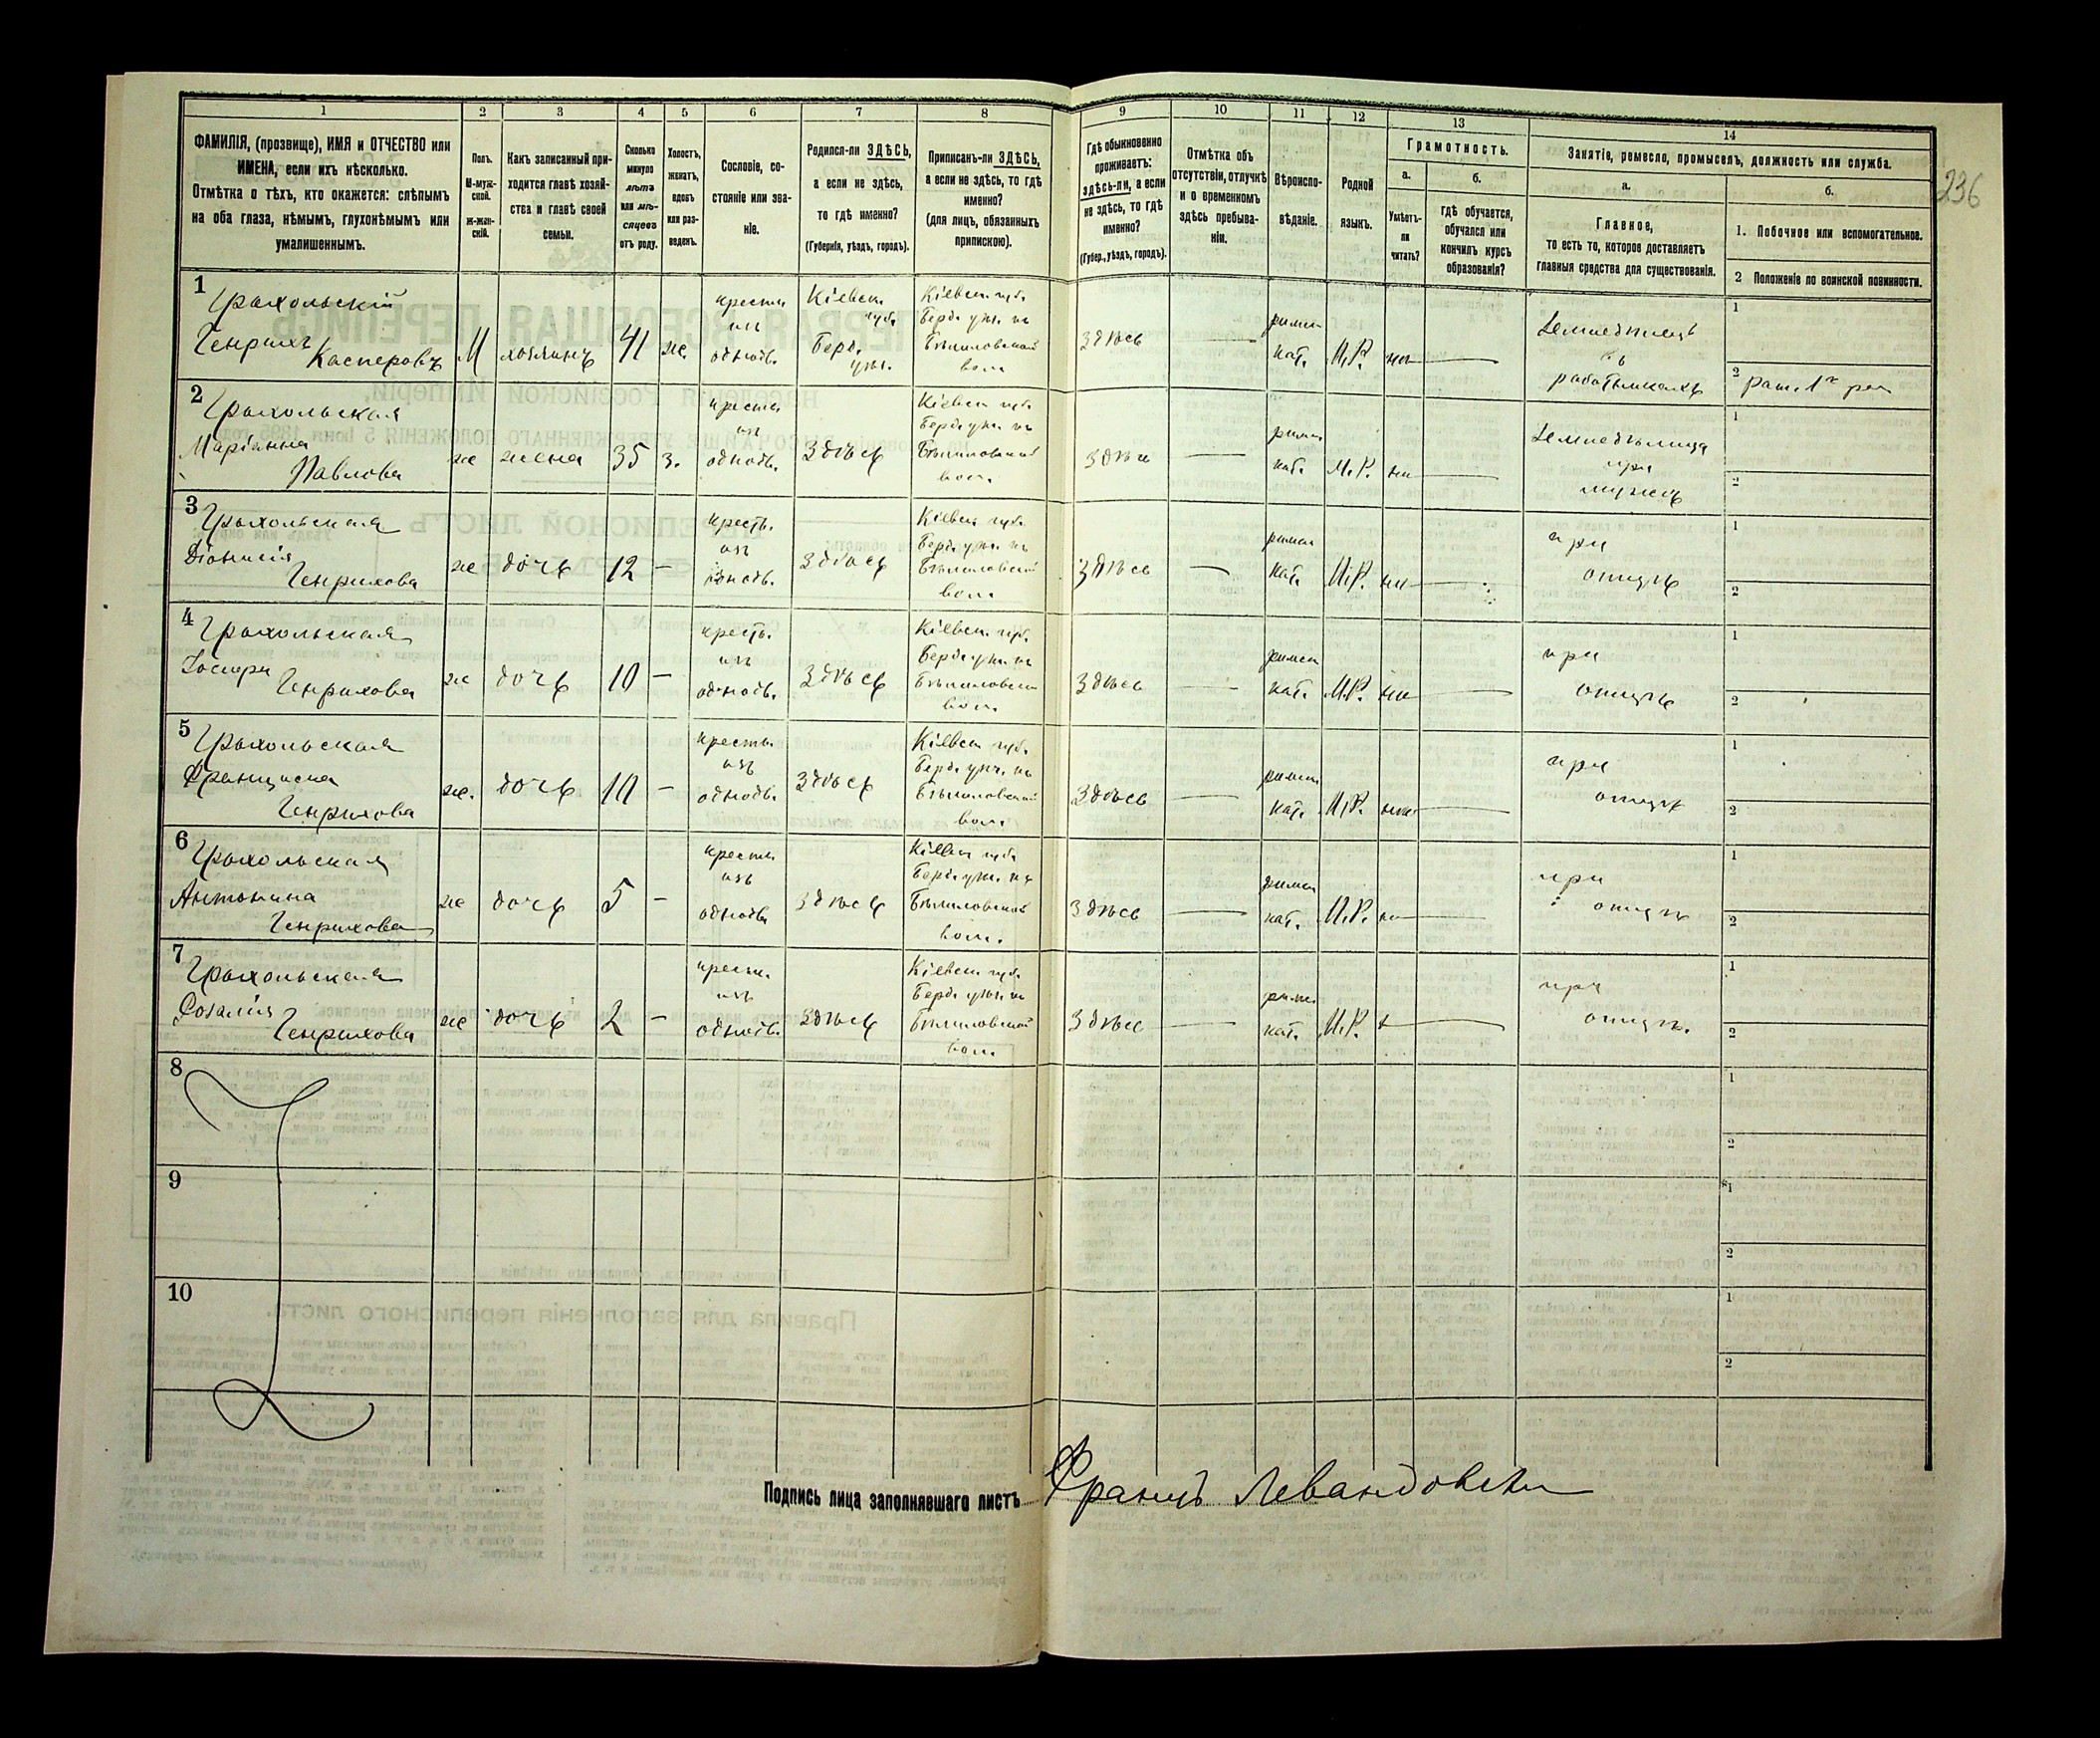 236
1 2 3 4 5 6 7 8 9 10 11 12 13 14
ФАМИЛІЯ, (прозвище), ИМЯ и ОТЧЕСТВО или
ИМЕНА, если ихъ нѣсколько.
Отмѣтка о тѣхъ, кто окажется: слѣпымъ
на оба глаза, нѣмымъ, глухонѣмымъ или
умалишеннымъ.
Полъ.
М-муж-
ской.
ж-жен-
скій.
Какъ записанный при-
ходится главѣ хозяй-
ства и главѣ своей
семьи.
Сколько
минуло
лѣтъ
или мѣ-
сяцевъ
отъ роду.
Холостъ,
женатъ,
вдовъ
или раз-
веденъ.
Сословіе, со-
стояніе или зва-
ніе.
Родился-ли ЗДѢСЬ,
а если не здѣсь,
то гдѣ именно?
(Губернія, уѣздъ, городъ).
Приписанъ-ли ЗДѢСЬ,
а если не здѣсь, то гдѣ
именно?
(для лицъ, обязанныхъ
припискою).
Гдѣ обыкновенно
проживаетъ:
здѣсь-ли, а если
не здѣсь, то гдѣ
именно?
(Губер., уѣздъ, городъ).
Отмѣтка объ
отсутствіи, отлучкѣ
и о временномъ
здѣсь пребыва-
ніи.
Вѣроиспо-
вѣданіе.
Родной
языкъ.
Грамотность.
а.
Умѣетъ-
ли
читать?
б.
гдѣ обучается,
обучался или
кончилъ курсъ
образованія?
Занятіе, ремесло, промыселъ, должность или служба.
а.
Главное,
то есть то, которое доставляетъ
главныя средства для существованія.
б.
1. Побочное или вспомогательное.
2 Положеніе по воинской повинности.
1
Грыхольскій
Генрихъ
Касперовъ
М
хозяинъ
41
ж.
кресть.
изъ
однодв.
Кіевск.
губ.
Берд.
уѣз.
Кіевск. губ.
Берд. уѣз. къ
Бѣлиловской
вол.
здѣсь
римск
кат.
М.Р.
нѣ
Земледѣлецъ
въ
работникахъ
1
2
рат. 1го ра
2
Грыхольская
Маріанна
Павлова
ж
жена
35
з.
кресть
изъ
однодв.
здѣсь
Кіевск губ.
Берд. уѣз. къ
Бѣлиловской
вол.
здѣсь
римск
кат.
М.Р.
нѣ
Земледѣлица
при
мужѣ
1
2
3
Грыхольская
Діонисія
Генрихова
ж
дочь
12
кресть.
изъ
однодв.
здѣсь
Кіевск губ.
Берд. уѣз. къ
Бѣлиловской
вол.
здѣсь
римск
кат.
М.Р.
нѣ
при
отцѣ
1
2
4
Грыхольская
Генрихова
ж
дочь
10
кресть.
изъ
однодв.
здѣсь
Кіевск. губ.
Берд. уѣз. къ
Бѣлиловской
вол.
здѣсь
римск
кат.
М.Р.
нѣ
при
отцѣ
1
2
5
Грыхольская
Франциска
Генрихова
ж.
дочь
10
кресть.
изъ
однодв.
здѣсь
Кіевск губ.
Берд. уѣз. къ
Бѣлиловской
вол.
здѣсь
римск
кат.
М.Р.
нѣ
при
отцѣ
1
2
6
Грыхольская
Антонина
Генрихова
ж
дочь
5
кресть
изъ
однодв
здѣсь
Кіевск губ.
Берд. уѣз. къ
Бѣлиловской
вол.
здѣсь
римск
кат.
М.Р.
нѣ
при
отцѣ
1
2
7
Грыхольская
Розалія
Генрихова
ж
дочь
2
кресть.
изъ
однодв.
здѣсь
Кіевск губ.
Берд. уѣз. къ
Бѣлиловской
вол.
здѣсь
римск
кат.
М.Р.
при
отцѣ.
1
2
8
1
2
9
1
2
10
1
2
Подпись лица заполнявшаго листъ
Францъ Левандовски